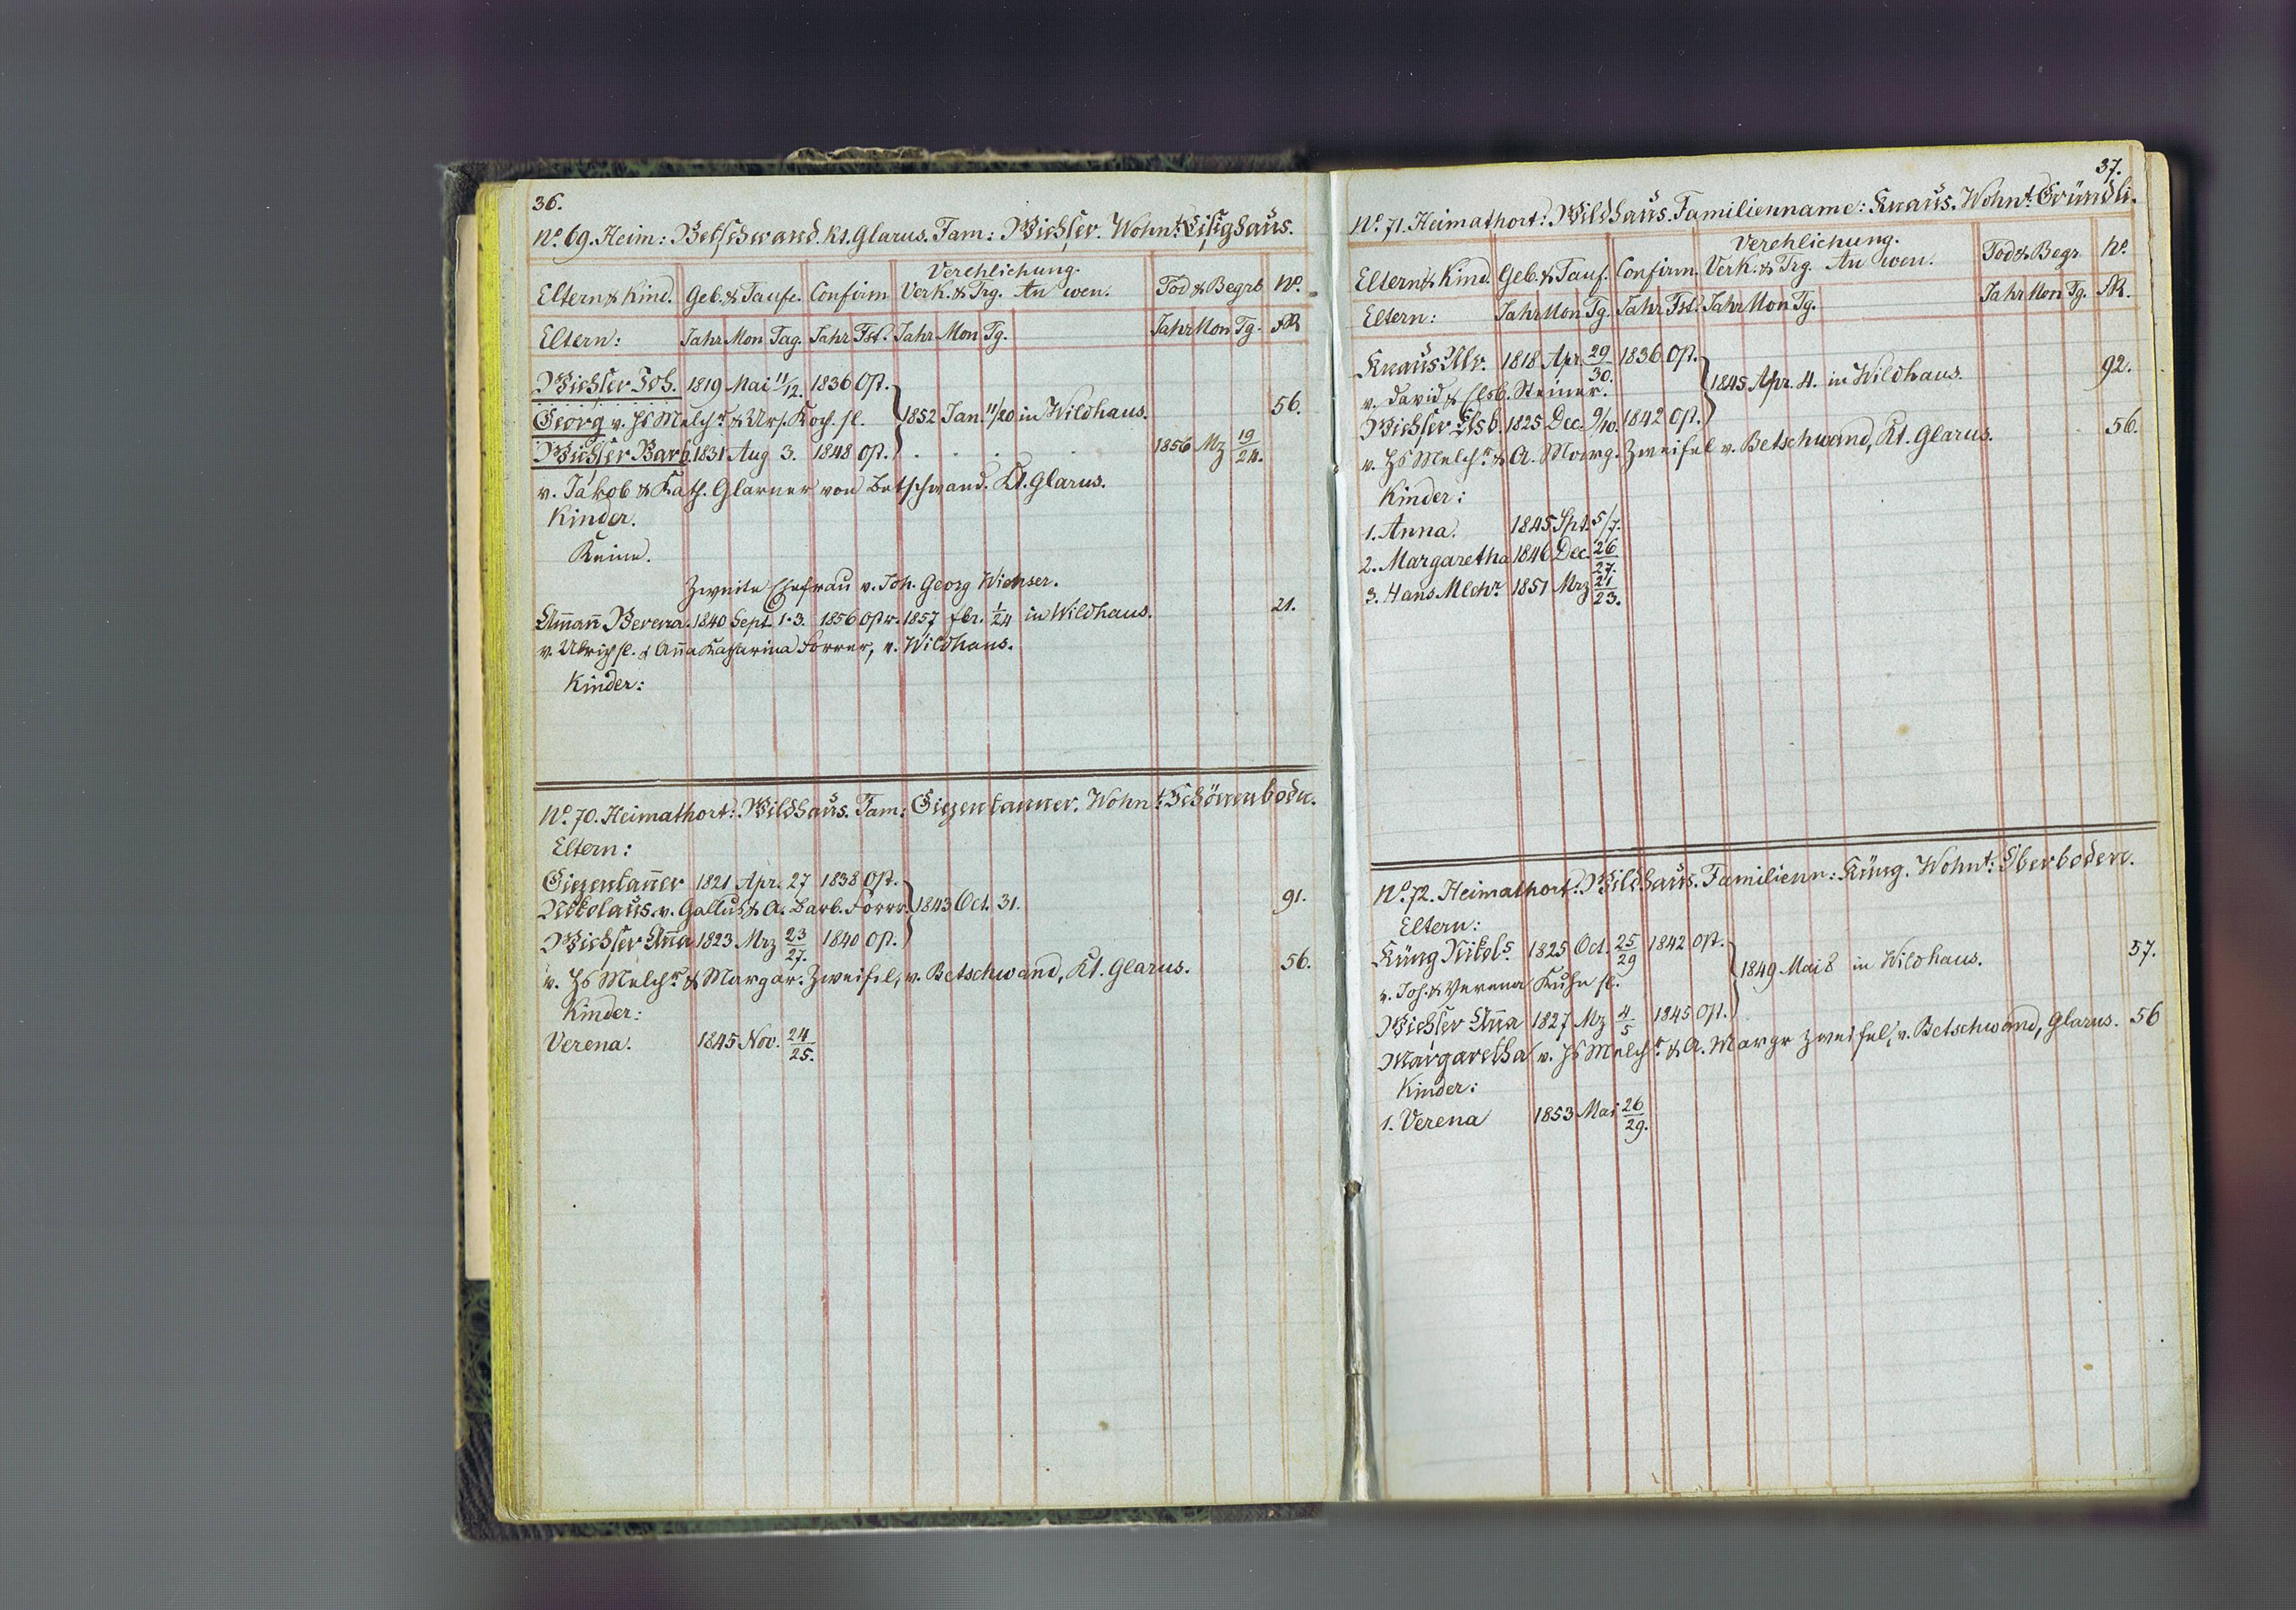 36.
No. 69. Heim: Betschwand. Kt. Glarus. Fam: Wichser. Wohnt: Lisighaus.
Verehlichung.
Eltern & Kind. Geb. & Taufe. Confirm Verk. & Trg. An wen. Tod & Begrb No.
Eltern: Jahr Mon Tag. Jahr Fst. Jahr Mon Tg. Jahr Mon Tg. FR
Wichser Joh. 1819 Mai 11/12. 1836 Ost.
Georg v. Hs Melchr & Urs. Koch. sl. 1852 Jan. 11/20 in Wildhaus. 56.
Wichser Barb. 1831 Aug 3. 1848 Ost. 1856 Mz 19/24.
v. Jakob & Kath. Glarner von Betschwand. Kt. Glarus.
Kinder.
Keine.
Zweite Ehefrau v. Joh. Georg Wichser.
Am̄ann Verena. 1840 Sept. 1·3. 1856 Ostr. 1857 fbr. 1/24 in Wildhaus. 21.
v. Ulrich sl. & Anna Katharina Forrer, v. Wildhaus.
Kinder:
No. 70. Heimathort: Wildhaus. Fam: Giezentanner. Wohnt: Schönenbodn.
Eltern:
Giezentan̄er 1821 Apr. 27 1838 Ost.
Nikolaus. v. Gallus & A. Barb. Forrr. 1843 Oct. 31. 91.
Wichser An̄a 1823 Mrz 23/27. 1840 Ost.
v. Hs Melchr & Margar. Zweifel, v. Betschwand, Kt. Glarus. 56.
Kinder:
Verena. 1845 Nov. 24/25.
37.
No. 71. Heimathort: Wildhaus. Familienname: Knaus. Wohnt: Gründli.
Verehlichung.
Eltern & Kind. Geb. & Tauf. Confirm. Verk. & Trg. An wen. Tod & Begr. No.
Eltern: Jahr Mon Tg. Jahr Fst. Jahr Mon Tg. Jahr Mon Tg. FR.
Knaus Ulr. 1818 Apr. 29/30. 1836 Ost.
v. David & Elsb. Steiner. 1845 Apr. 4. in Wildhaus. 92.
Wichser Elsb. 1825 Dec. 9/10. 1842 Ost.
v. Hs Melchr & A. Marg. Zweifel v. Betschwand, Kt. Glarus. 56.
Kinder:
1. Anna. 1845 Spt. 5/7.
2. Margaretha 1846 Dec. 26/27.
3. Hans Mlchr 1851 Mrz 21/23.
No. 72. Heimathort: Wildhaus. Familienn: Küng. Wohnt: Oberboden.
Eltern:
Küng Nikols 1825 Oct. 25/29 1842 Ost.
v. Joh. & Verena Kuhn sl. 1849 Mai 8 in Wildhaus. 57.
Wichser An̄a 1827 Mz 4/5 1845 Ost.
Margaretha v. Hs Melchr & A. Margr Zweifel, v. Betschwand, Glarus. 56
Kinder:
1. Verena 1853 Mai 26/29.